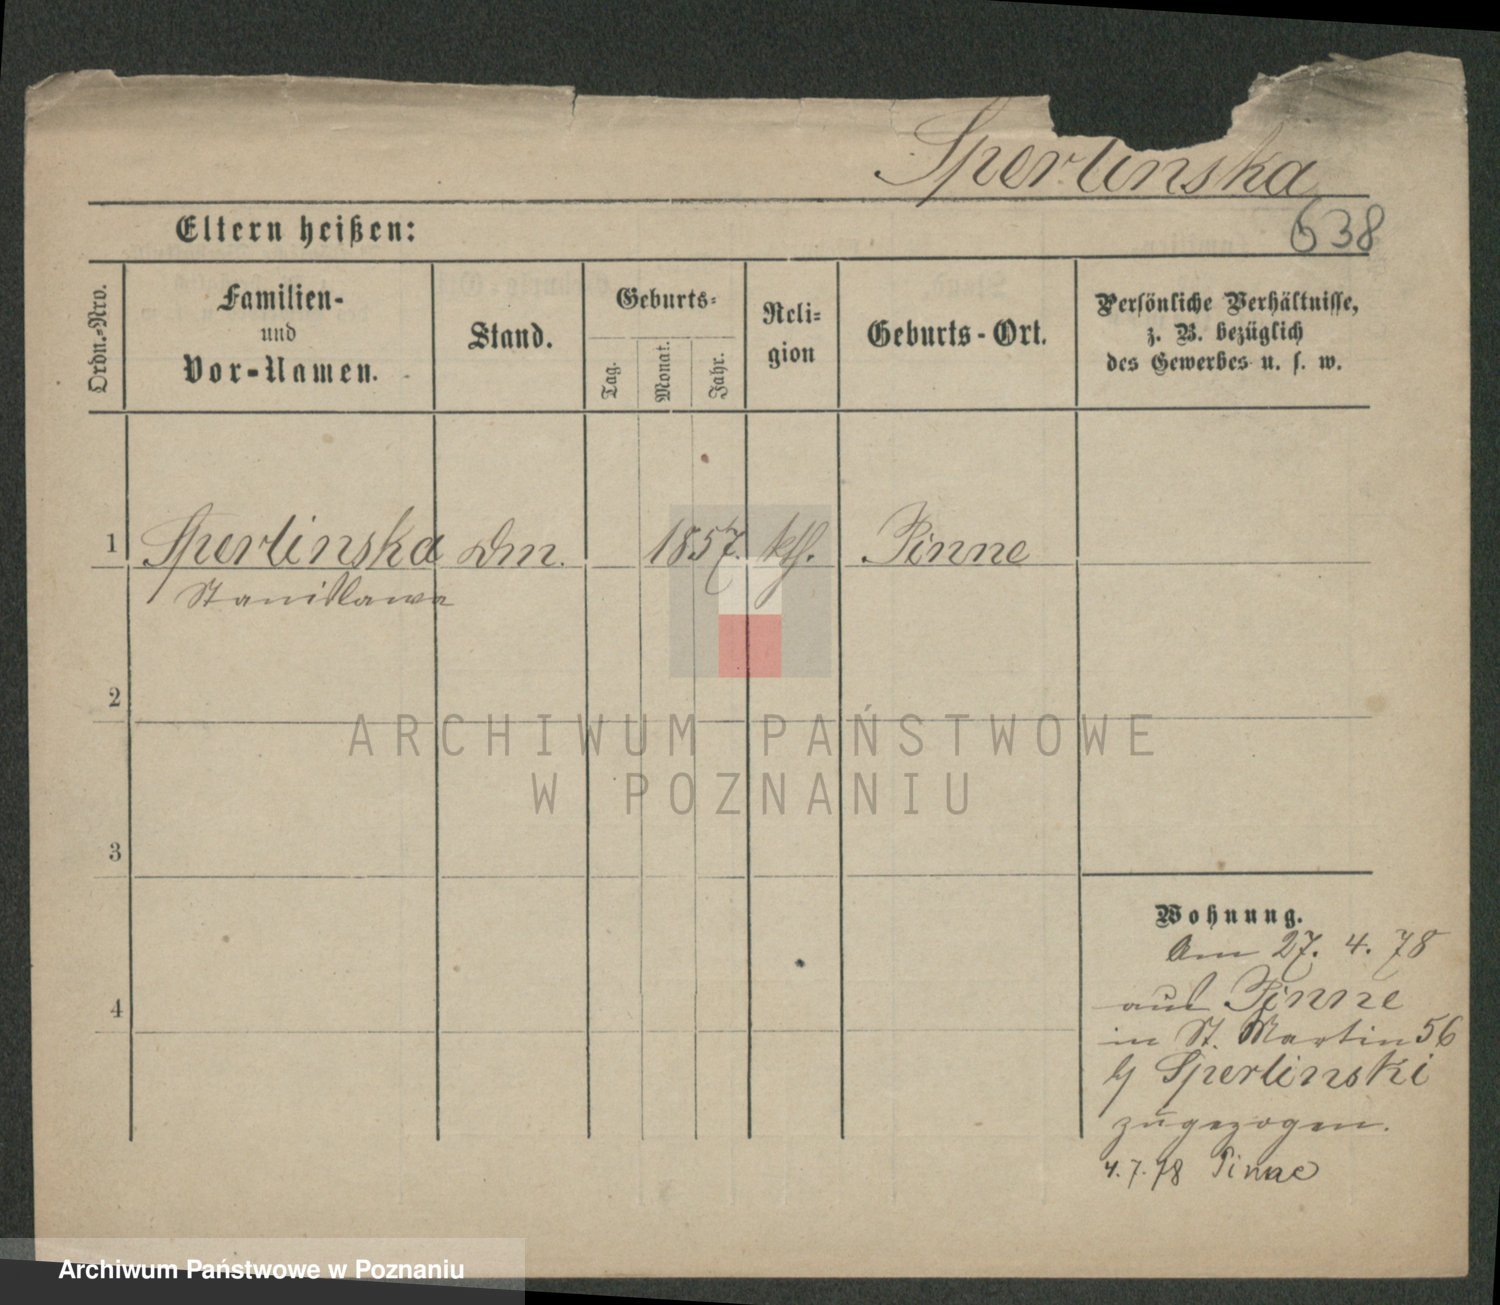 Sperlinska
638
Eltern heißen:
Ordn.-Nro.
Familien-
und
Vor-Namen.
Stand.
Geburts-
Tag.
Monat.
Jahr.
Reli-
gion
Geburts-Ort.
Persönliche Verhältnisse,
z. B. bezüglich
des Gewerbes u. s. w.
1 Sperlinska Dm. 1857. kth. Pinne
Stanislawa
2
3
4
Wohnung.
Am 27. 4. 78
aus Pinne
in St. Martin 56
Sperlinski
zugezogen.
4. 7. 78 Pinne
ARCHIWUM PAŃSTWOWE
W POZNANIU
Archiwum Państwowe w Poznaniu